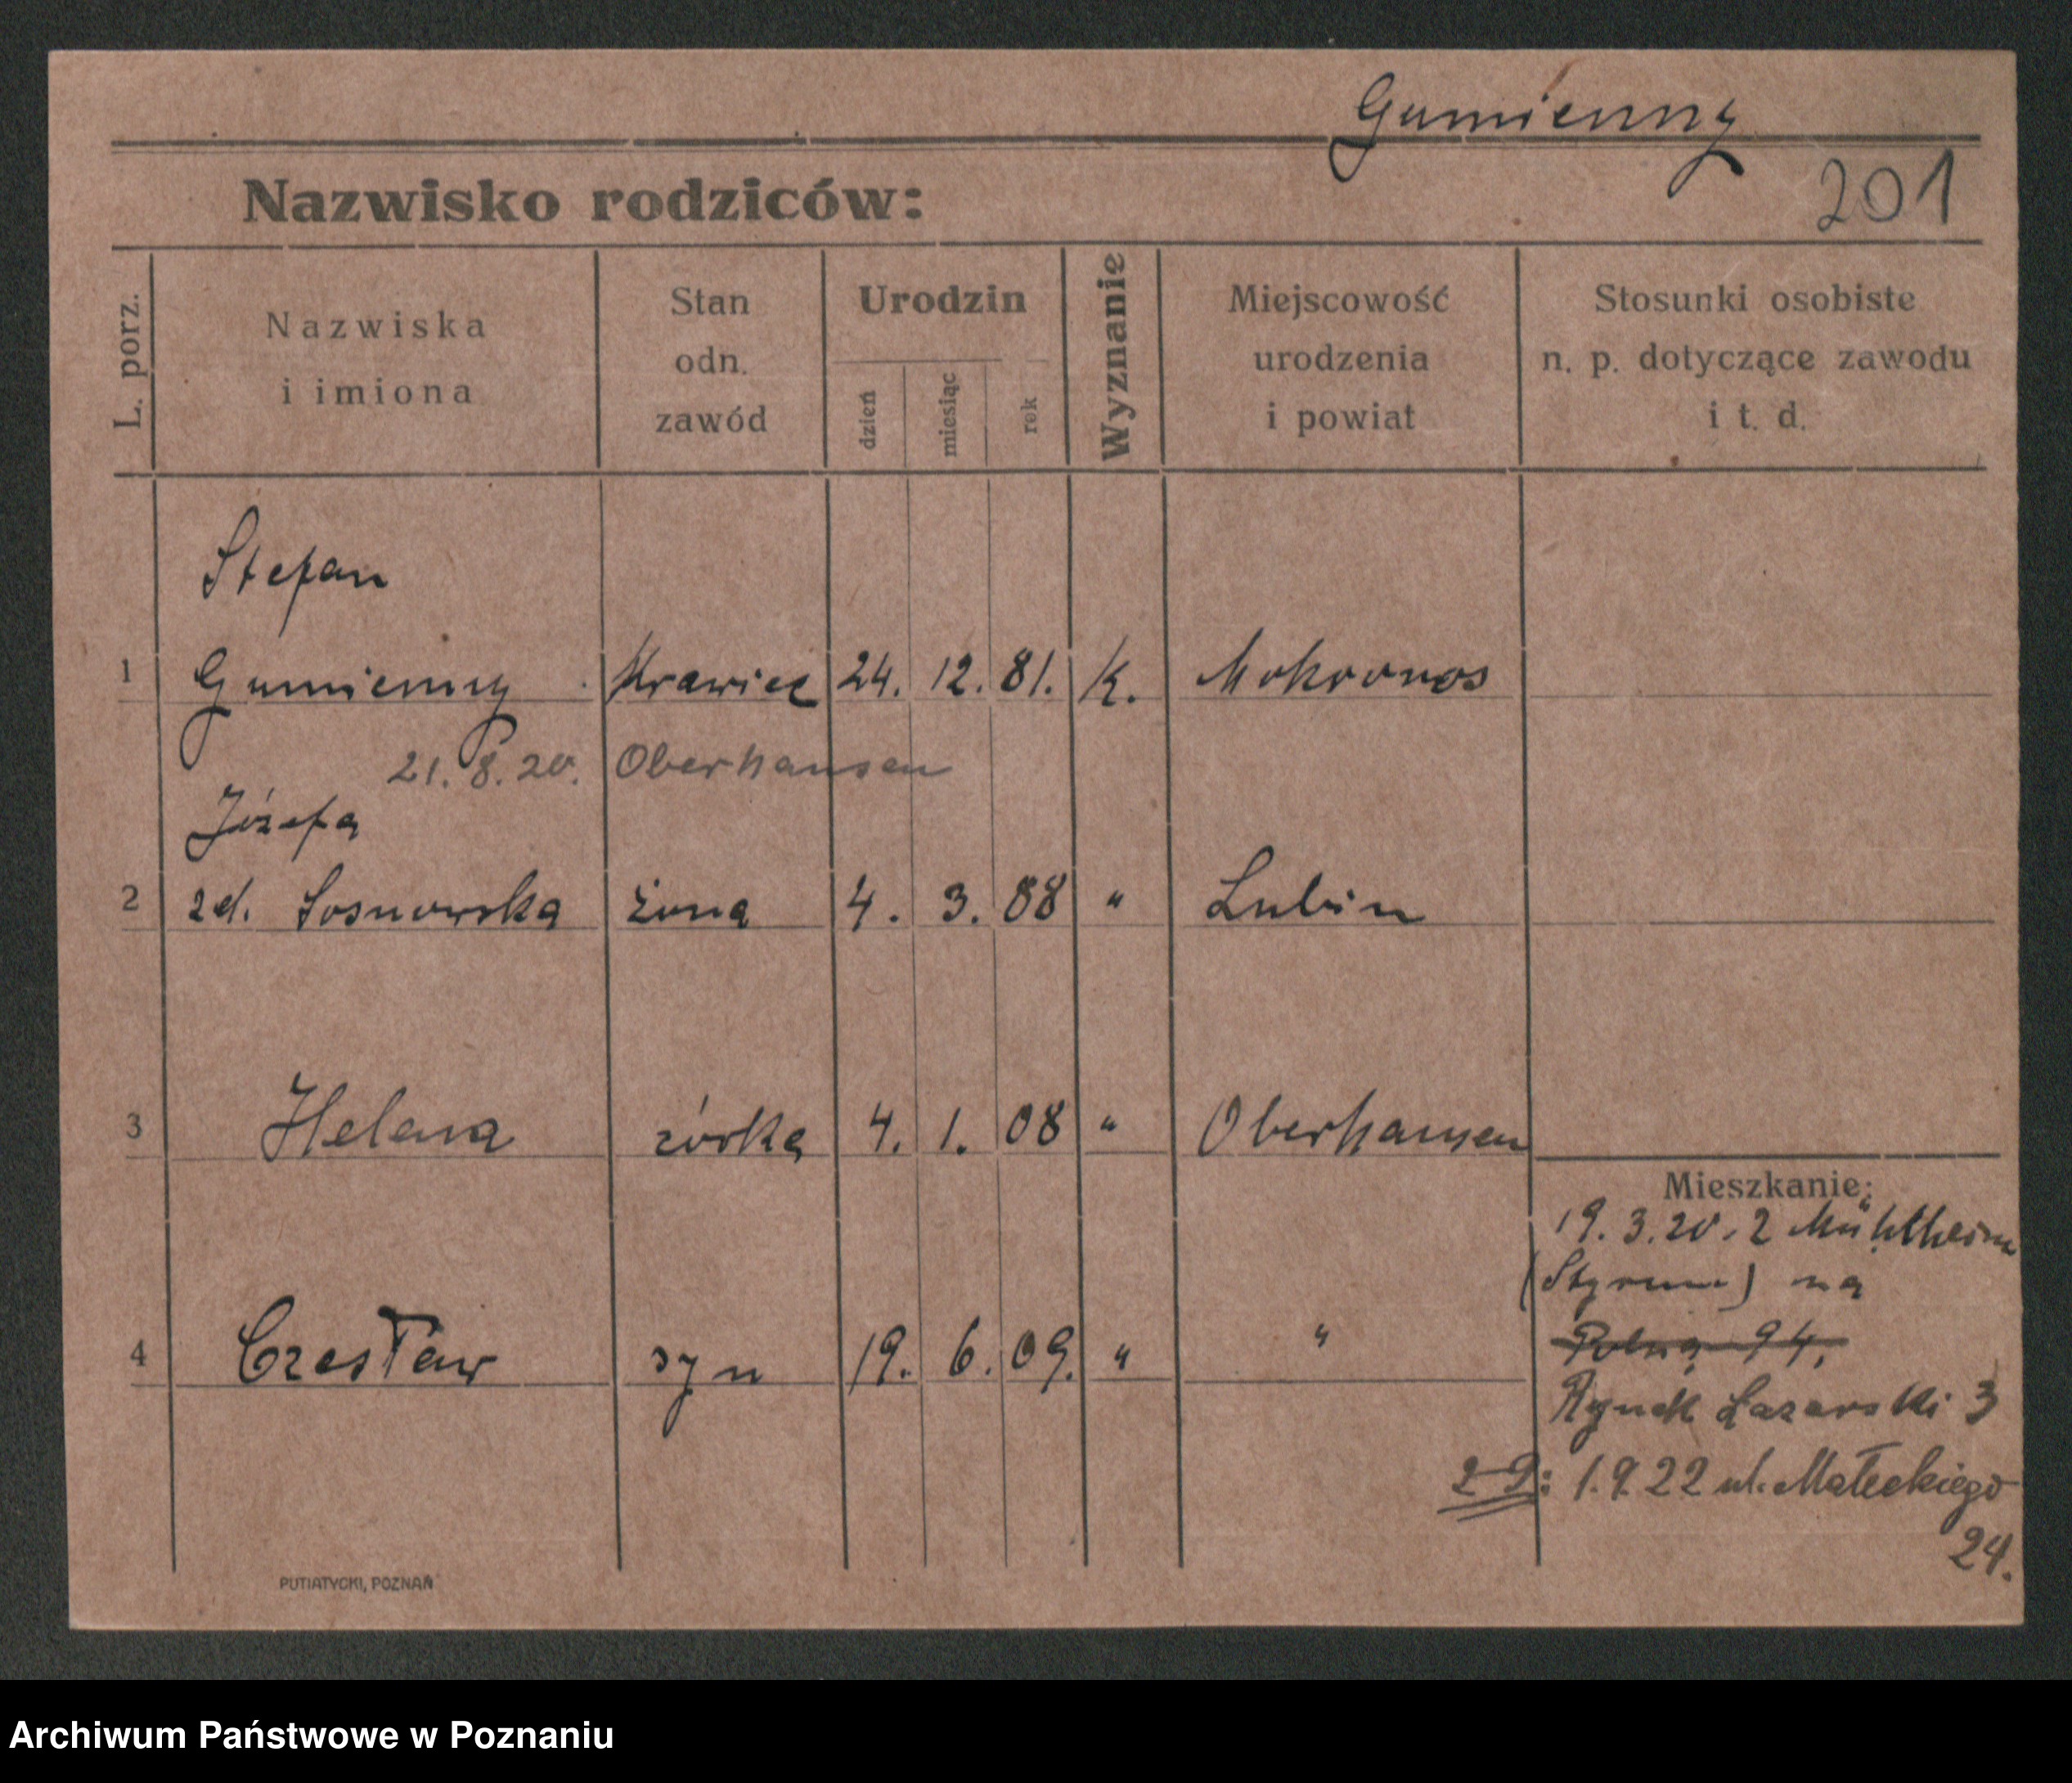 Gumienny
201
Nazwisko rodziców:
L. porz.
Nazwiska
i imiona
Stan
odn.
zawód
Urodzin
dzień
miesiąc
rok
Wyznanie
Miejscowość
urodzenia
i powiat
Stosunki osobiste
n. p. dotyczące zawodu
i t. d.
Stefan
1 Gumienny Krawiec 24. 12. 81. K. Mokronos
21.8.20. Oberhausen
Józefa
2 zd. Sosnowska żona 4. 3. 88 " Lubin
3 Helena córka 4. 1. 08 " Oberhausen
Mieszkanie:
19.3.20. z Mühlheim
(Styrum) na
4 Czesław syn 19. 6. 09. " "
Polna 94,
Rynek Łazarski 3
29: 1.9.22 ul. Małeckiego
24.
PUTIATYCKI, POZNAŃ
Archiwum Państwowe w Poznaniu